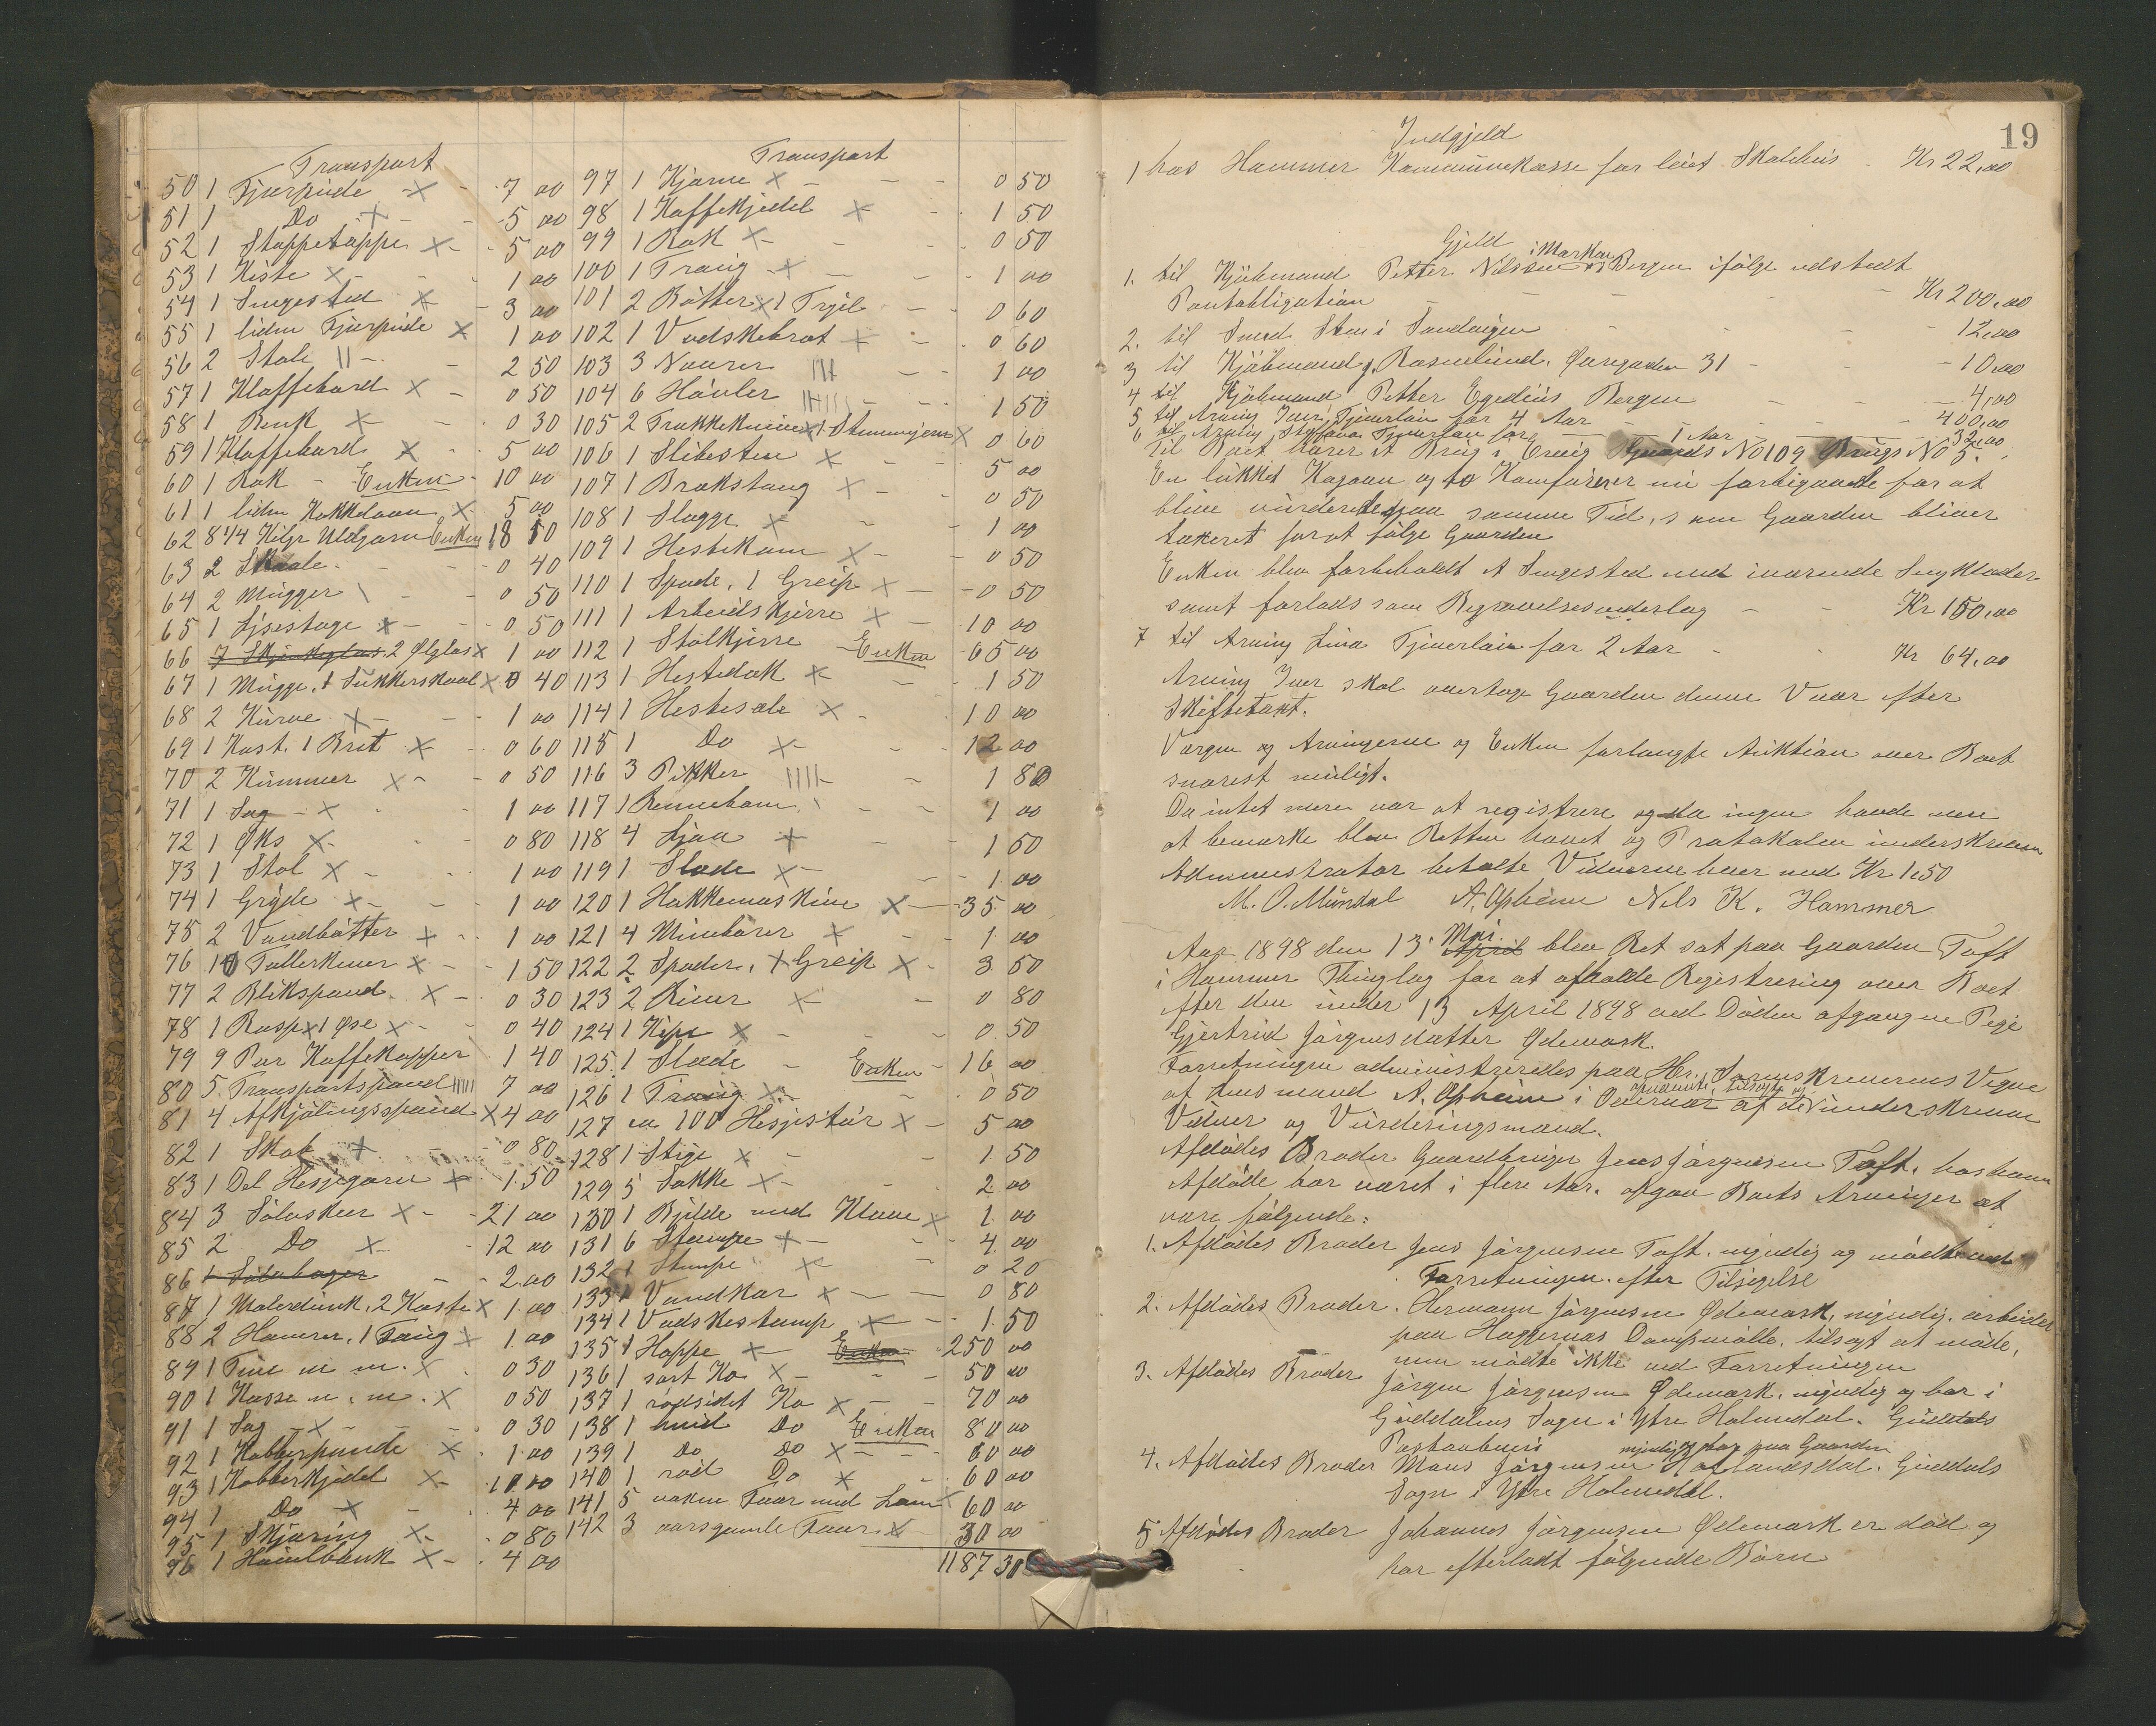 Transport
50 1 Fjærpude × - 7 00
51 1 Do × - 5 00
52 1 Stoppetæppe × - 5 00
53 1 Kiste × - 1 00
54 1 Sengested × - 3 00
55 1 liden Fjærpude × 1 00
56 2 Stole || - 2 50
57 1 Klaffebord × - 0 50
58 1 Benk × - 0 30
59 1 Klaffebord × 5 00
60 1 Rok - Enken - 10 00
61 1 liden Kakkelovn × 5 00
62 8 1/4 Kilgr Uldgarn Enken 18 50
63 2 Skaale - 0 40
64 2 Mugger \ - 0 50
65 1 Lysestage × - 0 50
66 2 Ølglas × 1 00
67 1 Mugge, 1 Sukkerskaal × 0 40
68 2 Kurve × - 1 00
69 1 Kost. 1 Bret × - 0 60
70 2 Kummer × - 0 50
71 1 Sag - × 1 00
72 1 Øks × - 0 80
73 1 Stol × - 1 00
74 1 Gryde × - 1 00
75 2 Vandbøtter × - 1 00
76 10 Tallerkener × - 1 50
77 2 Blikspand. × - 0 30
78 1 Rasp × 1 Øse × - 0 40
79 9 Par Kaffekopper 1 40
80 5 Transportspand ||||| 7 00
81 4 Afkjølingsspand × 4 00
82 1 Skab × 0 80
83 1 Del Hesjegarn × 1.50
84 3 Sølvskeer × - 21 00
85 2 Do × - 12 00
86 1 Sølvbæger - 2.00
87 1 Malerdunk, 2 Kaste × 1 00
88 2 Hamrer, 1 Tang × 1.00
89 1 Tine m m. × 0 30
90 1 Kasse m. m. × 0 50
91 1 Sag - × - 0 30
92 1 Kobberpande × 1.00
93 1 Kobberkjedel × - 10.00
94 1 Do × - 4 00
95 1 Skjæring × - 0 80
96 1 Høvelbænk × - 4 00
Transport
97 1 Kjærne × - 0 50
98 1 Kaffekjedel × - 1 50
99 1 Rok × - 0 50
100 1 Traug × - 1 00
101 2 Bøtter × 1 Tryil - 0 60
102 1 Vadskebræt × - 0 60
103 3 Navrer |||| - 1 00
104 6 Høvler - 1 50
105 2 Trækkekniver × 1 Stemmejern × 0 60
106 1 Slibesten × - 5 00
107 1 Brækstang × - 0 50
108 1 Slægge × - 1 00
109 1 Hestekam × - 0 50
110 1 Spade. 1 Greip × - 0 50
111 1 Arbeidskjerre × - 10 00
112 1 Stolkjerre - Enken - 65 00
113 1 Hestedæk × - 1 50
114 1 Hestesele × - 10 00
115 1 Do × - 12 00
116 3 Pikker ||||| - 1 80
117 1 Rennebom - 1 00
118 4 Ljaa × - 1 50
119 1 Slæde × - 1 00
120 1 Hakkemaskine × - 35 00
121 4 Minebører × - 1 00
122 2 Spader. × Greip × - 3 50
123 2 River × - 0 80
124 1 Kipe × - 0.50
125 1 Slæde - Enken - 16 00
126 1 Traug × - 0 50
127 ca 100 Hesjestør × - 5 00
128 1 Stige × - 1 50
129 5 Sække × - 2 00
130 1 Bjelde med Klave × 1 00
131 6 Stampe × - 4 00
132 1 Stampe × - 0 20
133 1 Vandkar × - 0 80
134 1 Vadskestamp × - 1 50
135 1 Hoppe × - Enken 250 00
136 1 sort Ko × - 50 00
137 1 rødsidet Ko × - 70 00
138 1 hvid Do Enken 80 00
139 1 Do Do × - 60 00
140 1 rød Do × - 60 00
141 5 voksne Faar med Lam × 60 00
142 3 aarsgamle Faar × 30 00
1187 30
19
Indgjeld
1 hos Hammer Kommunekasse for leiet Skolehus - Kr 22,00
Gjeld
1. til Kjøbmand Petter Nilssen i Marken Bergen ifølge udstedt
Pantobligation - Kr 200,00
2. til Smed Sten i Sandvigen - 12,00
3 til Kjøbmand J. Rosenlund. Øvregaden 31 - 10,00
4 til Kjøbmand Petter Egedius Bergen - 4,00
5 til Arving Iver Tjuerlain for 4 Aar - 400,00
6 til Arving Tjuerlain for 1 Aar - 32,00
Til Boet hører et Brug i Gaards No 109 Brugs No 5.
En lukket Kagaan og to Komfurer nu forbigaaede for at
blive vurderede paa samme Tid, som Gaarden bliver
taxeret for at følge Gaarden
Enken blev forbeholdt et Sengested med iværende Sengklæder
samt forlods som Begravelsesvederlag - Kr 150,00
7 til Arving Lina Tjuerlain for 2 Aar - Kr 64,00
Arving Iver skal overtage Gaarden denne Vaar efter
Skiftetaxt.
Vergen og Arvingerne og Enken forlangte Auktion over Boet
snarest muligt.
Da intet mere var at registrere og da ingen havde mere
at bemærke blev Retten hævet og Protokollen underskreven
Administrator betalte Vidnerne hver med Kr 1,50
M. O. Mundal A. Opheim Nils K. Hammer
Aar 1898 den 13. April Mai. blev Ret sat paa Gaarden Toft
i Hammer Thinglag for at afholde Registrering over Boet
efter den under 13 April 1898 ved Døden afgangne Pige
Gjertrud Jørgensdatter Ødemark.
Forretningen administreredes paa Hr. Sorenskriverens Vegne
af Lensmand A. Opheim i Overvær af de underskrevne
Vidner og Vurderingsmænd.
Afdødes Broder Gaardbruger Jens Jørgensen Toft, hos ham
Afdøde har været i flere Aar. opgav Boets Arvinger at
være følgende:
1. Afdødes Broder Jens Jørgensen Toft. myndig og mødte ved
Forretningen. efter Tilsigelse
2. Afdødes Broder. Hermann Jørgensen Ødemark, myndig. arbeider
paa Haggernæs Dampmølle. tilsagt at møde,
men mødte ikke ved Forretningen
3. Afdødes Broder Jørgen Jørgensen Ødemark. myndig og bor i
Guddals Sogn i Ytre Holmedal. Guddals
Postaabneri
4. Afdødes Broder Mons Jørgensen myndig og bor paa Gaarden Hovlandsdal. Guddals
Sogn i Ytre Holmedal.
5 Afdødes Broder Johannes Jørgensen Ødemark er død og
har efterladt følgende Børn